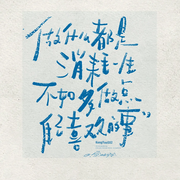 做什么都是
消耗一生
不如多做点
自己喜欢的事”